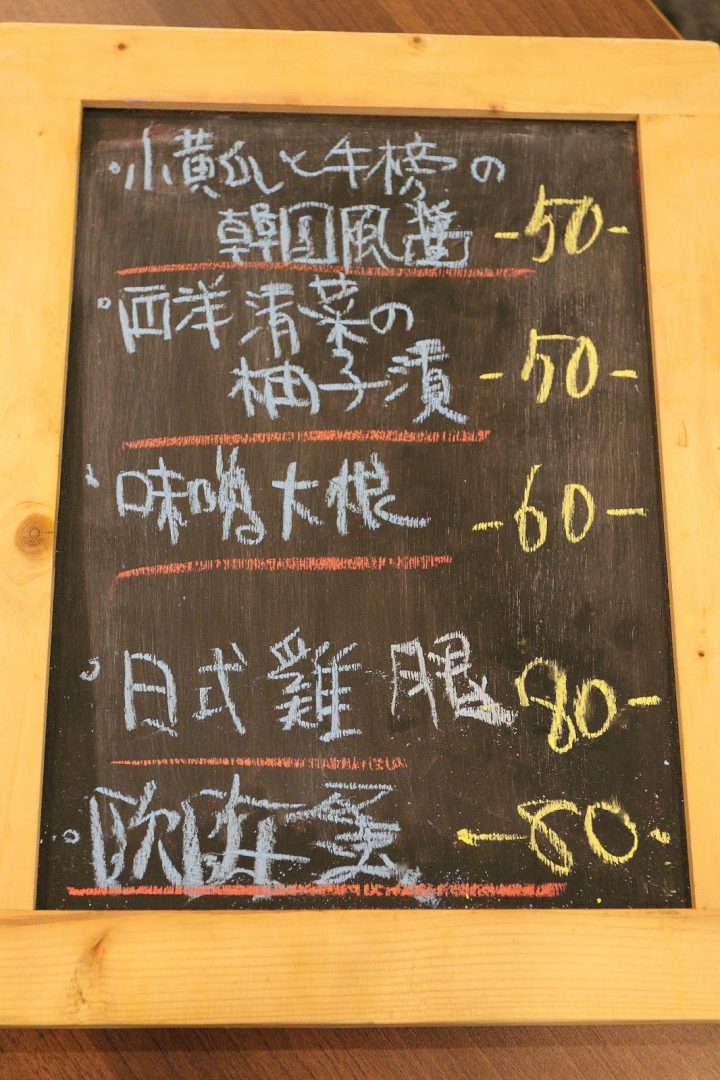 小黄瓜と牛榜の
韓国風醬 -50-
西洋清菜の
柚子漬 -50-
味噌大根 -60-
日式雞腿 80-
-80-